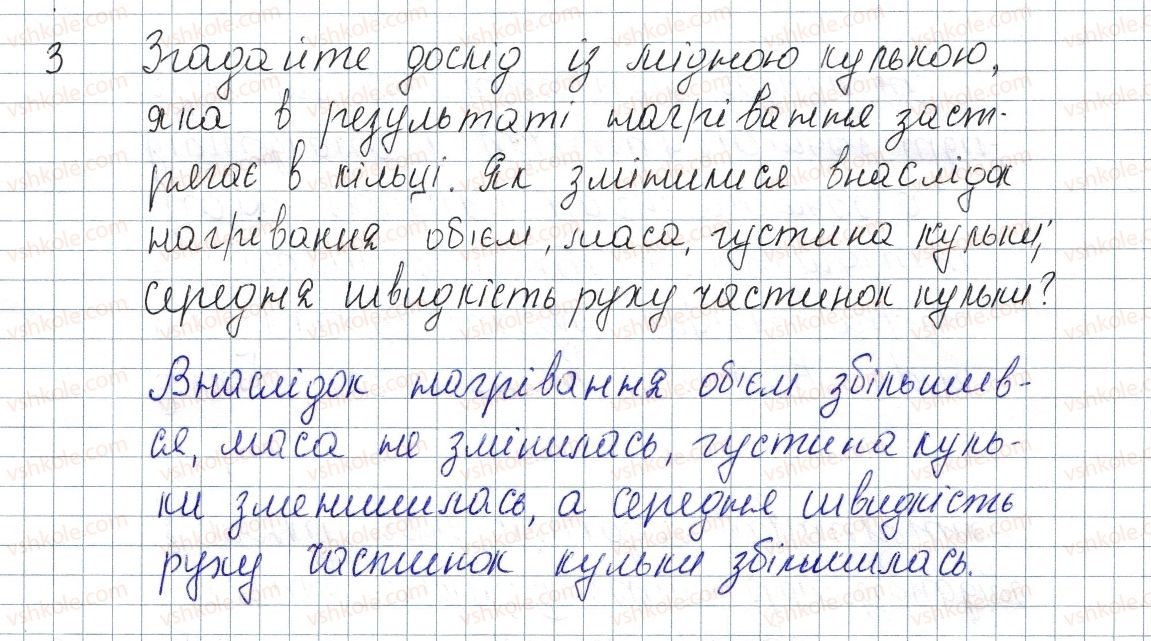 3 Згадайте дослід із мідною кулькою,
яка в результаті нагрівання заст-
рягає в кільці. Як змінилися внаслідок
нагрівання об'єм, маса, густина кульки;
середня швидкість руху частинок кульки?
Внаслідок нагрівання об'єм збільшив-
ся, маса не змінилась, густина куль-
ки зменшилась, а середня швидкість
руху частинок кульки збільшилась.